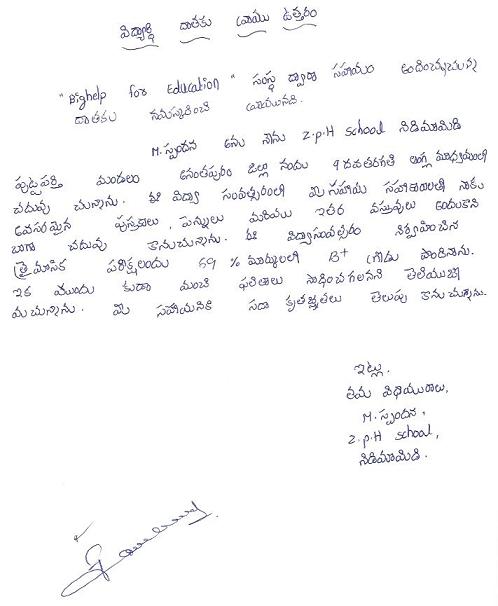 విద్యార్థి దాతకు వ్రాయు ఉత్తరం
"Bighelp for Education" సంస్థ ద్వారా సహాయం అందించుచున్న
దాతకు నమస్కరించి వ్రాయునది.
M. స్పందన అను నేను Z.P.H school నిడిమామిడి
పుట్టపర్తి మండలం అనంతపురం జిల్లా నందు 9 వ తరగతి ఆంగ్ల మాధ్యమంలో
చదువు చున్నాను. ఈ విద్యా సంవత్సరంలో మీ సహాయ సహకారాలతో నాకు
అవసరమైన పుస్తకాలు, పెన్నులు మరియు ఇతర వస్తువులు అందుకొని
బాగా చదువు కొనుచున్నాను. ఈ విద్యాసంవత్సరం నిర్వహించిన
త్రైమాసిక పరీక్షలందు 69 % మార్కులతో B+ గ్రేడు పొందినాను.
ఇక ముందు కూడా మంచి ఫలితాలు సాధించగలనని తెలియజే
యు చున్నాను. మీ సహాయానికి సదా కృతజ్ఞతలు తెలుపు కొనుచున్నాను.
ఇట్లు.
తమ విధేయురాలు,
M. స్పందన,
Z.P.H school,
నిడిమామిడి.